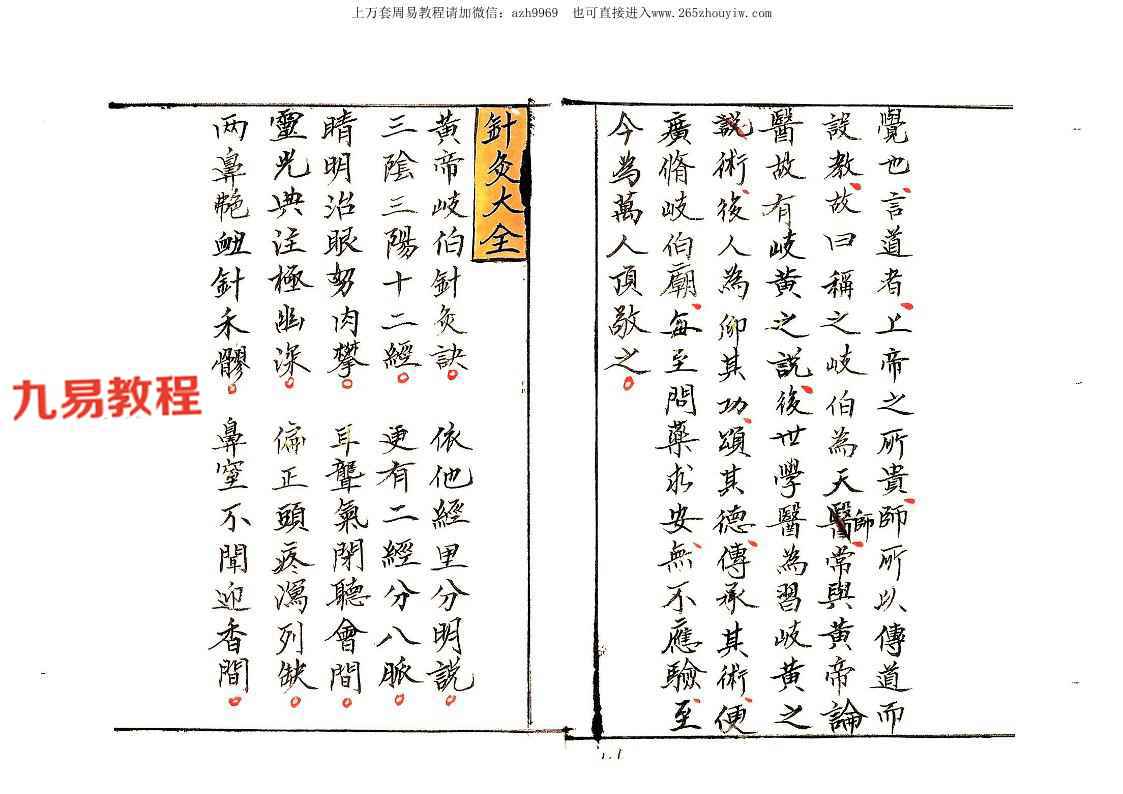 上万套周易教程请加微信：azh9969 也可直接进入www.265zhouyiw.com
覺也、言道者、上帝之所貴、師所以傳道而
設教、故曰稱之岐伯為天師、常與黃帝論
醫故有岐黃之說、後世學醫為習岐黃之
說術、後人為仰其功、頌其德、傳承其術、便
廣脩岐伯廟、每至問藥求安、無不應驗、至
今為萬人頂敬之。
針灸大全
黃帝岐伯針灸訣。 依他經里分明說。
三陰三陽十二經。 更有二經分八脈。
睛明治眼努肉攀。 耳聾氣閉聽會間。
靈光典注極幽深。 偏正頭疼瀉列缺。
两鼻齆衄針禾髎。 鼻窒不聞迎香間。
九易教程